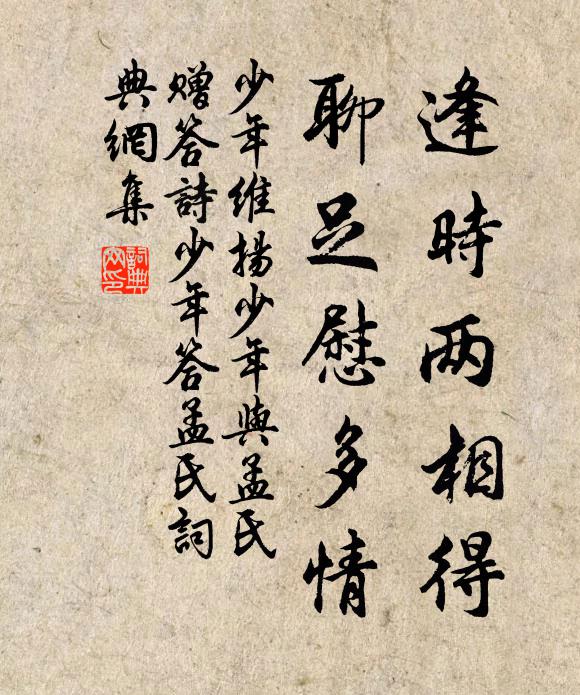 逢時两相得
聊足慰多情
少年維揚少年與孟氏
贈答詩少年答孟氏詞
典網集
詞典網印